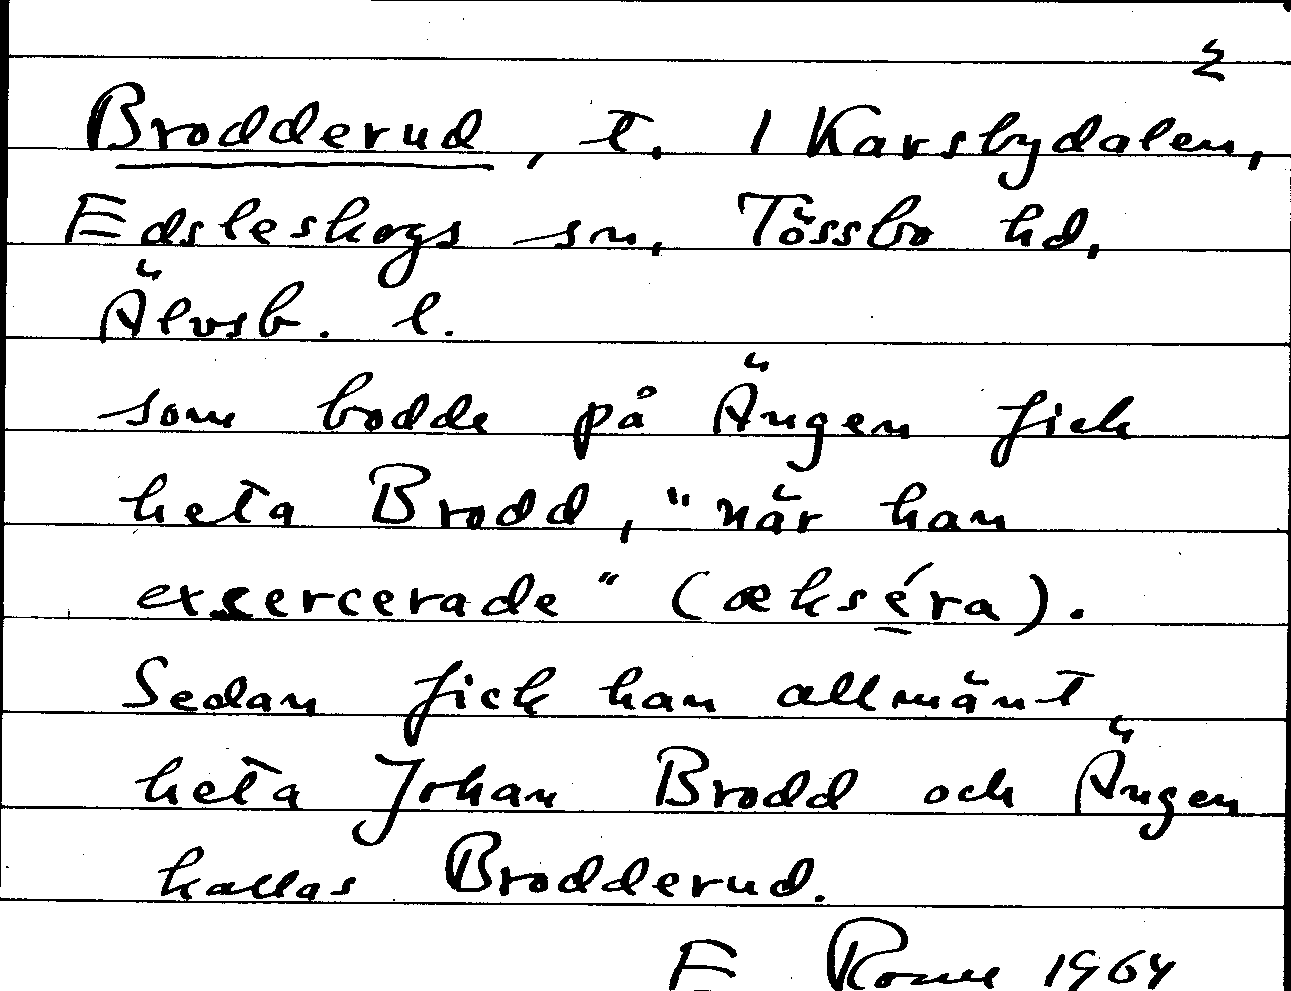 2
Brodderud, t. 1 Karsbydalen,
Edsleskogs sn, Tössbo hd,
Älvsb. l.
som bodde på Ängen fick
heta Brodd, "när han
exsercerade" (ækséra).
Sedan fick han allmänt
heta Johan Brodd och Ängen
kallas Brodderud.
E 1964